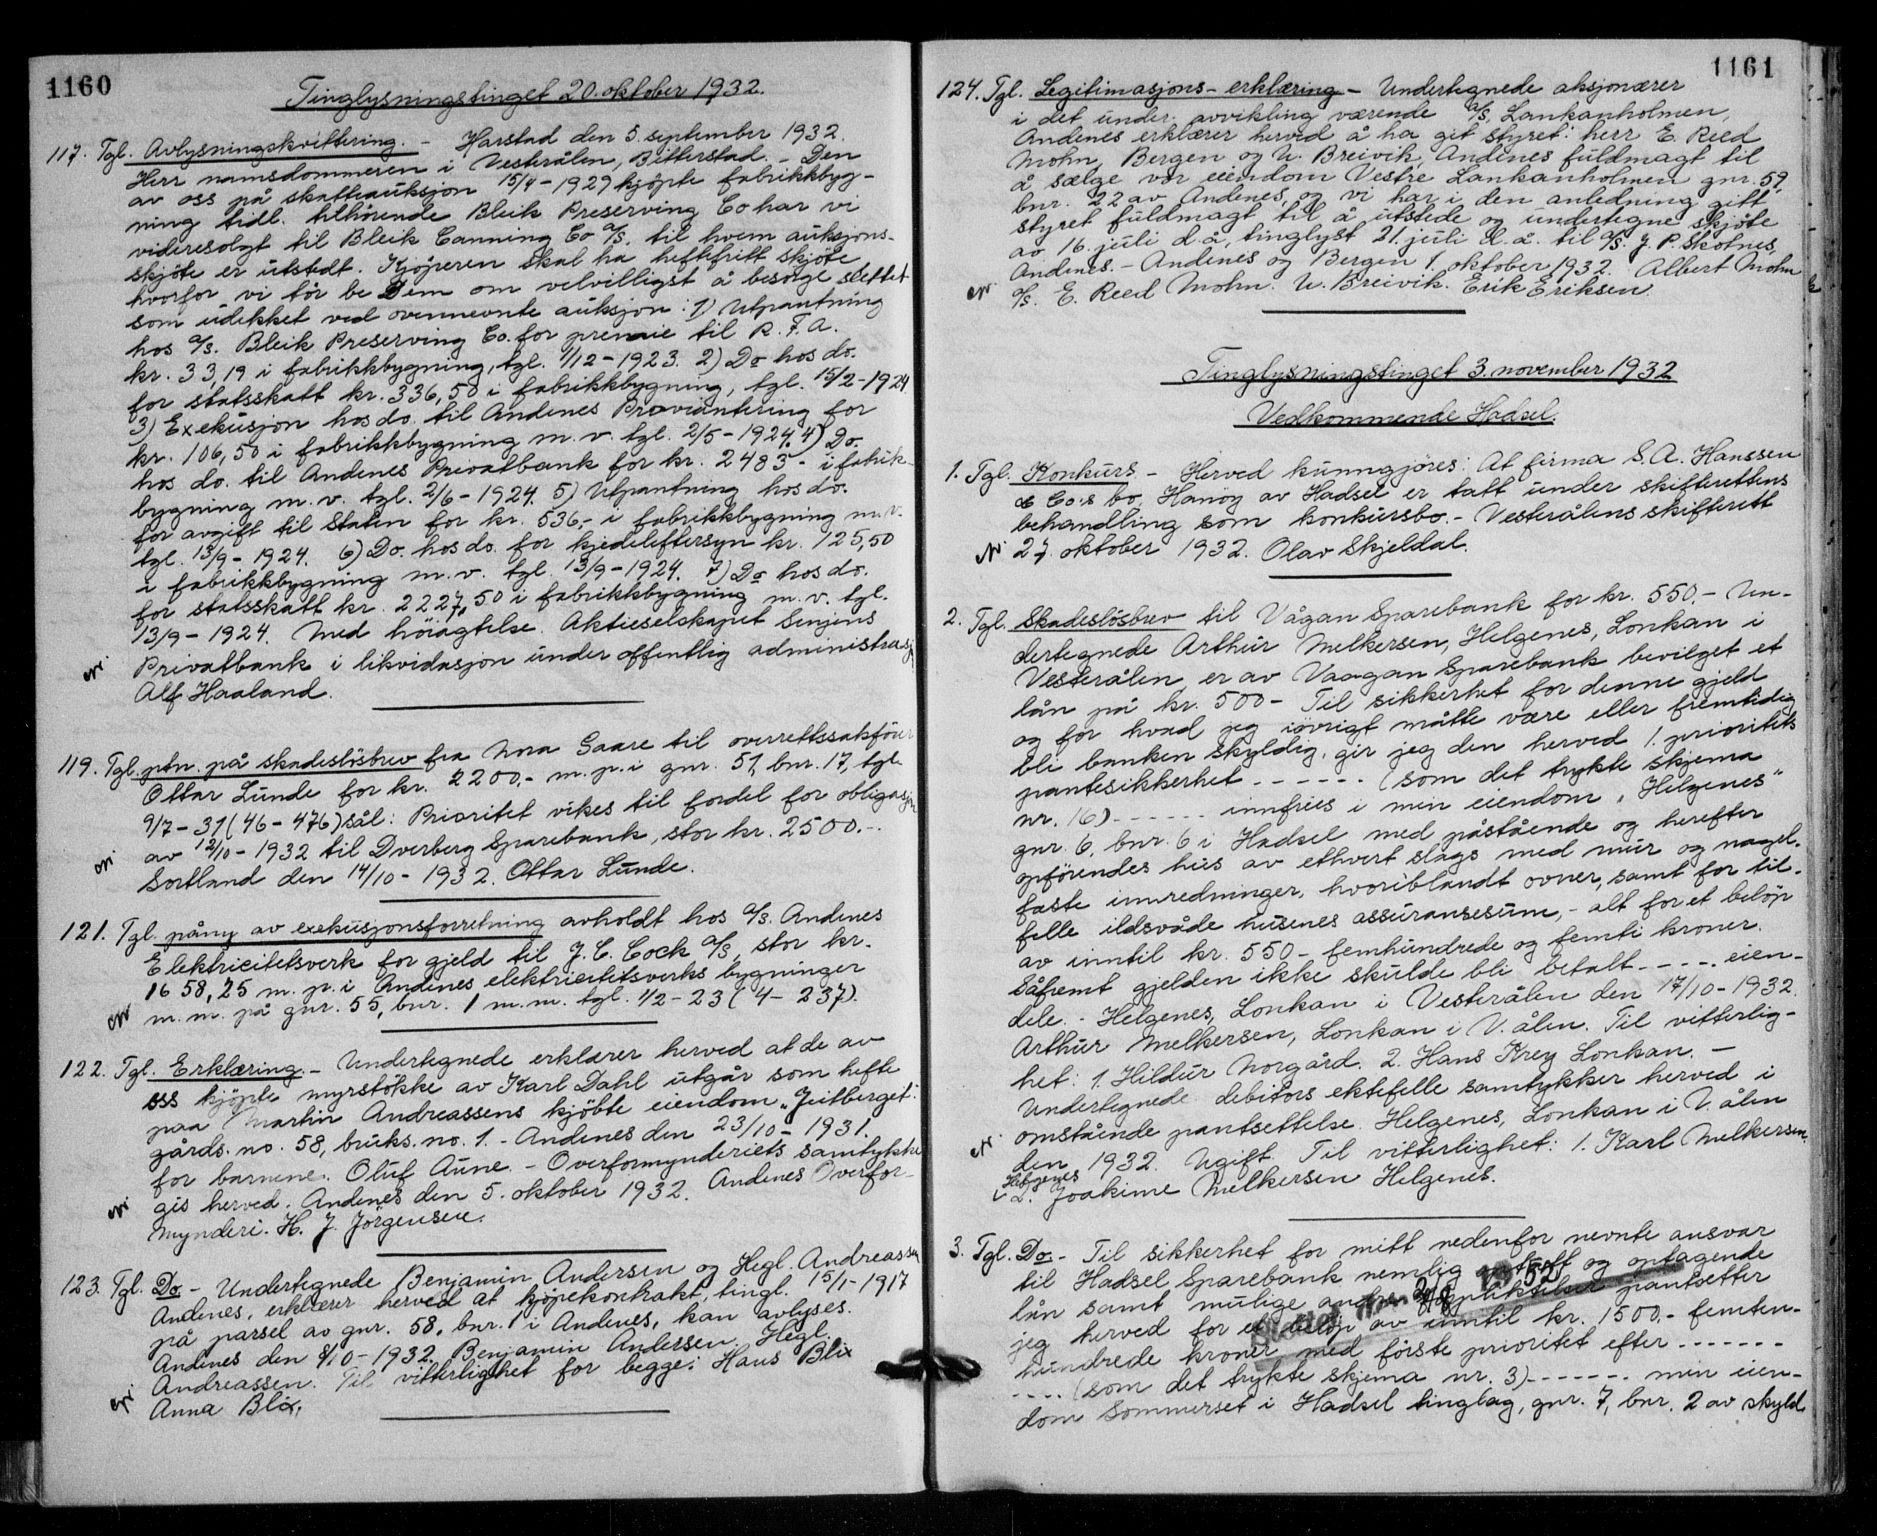 1160
Tinglysningstinget 20. oktober 1932.
117. Tgl. Avlysningskvittering. - Harstad den 5. september 1932.
Herr namsdommeren i Vesterålen, Bitterstad. - Den
av oss på skatteauksjon 15/4 - 1929 kjöpte fabrikkbyg-
ning tidl. tilhörende Bleik Preserving Co har vi
videresolgt til Bleik Canning Co a/s. til hvem auksjons-
skjöte er utstedt. Kjöperen skal ha heftefritt skjöte
hvorfor vi tör be Dem om velvilligst å besörge slettet
som udekket ved ovennevnte auksjon: 1) Utpantning
hos a/s. Bleik Preserving Co. for premie til R.F.A.
kr. 33,19 i fabrikkbygning, tgl. 1/12 - 1923. 2) Do hos do.
for statsskatt kr. 336,50 i fabrikkbygning, tgl. 15/2 - 1924
3) Exekusjon hos do. til Andenes Proviantering for
kr. 106,50 i fabrikkbygning m.v. tgl. 2/5 - 1924. 4) Do.
hos do. til Andenes Privatbank for kr. 2483 - i fabrik-
bygning m.v. tgl. 2/6 - 1924. 5) Utpantning hos do.
for avgift til Staten for kr. 536,- i fabrikkbygning m.v.
tgl. 13/9 - 1924. 6) Do. hos do. for kjedeleftersyn kr. 125,50
i fabrikkbygning m.v. tgl. 13/9 - 1924. 7) Do hos do.
for statsskatt kr. 2227,50 i fabrikkbygning m.v. tgl.
13/9 - 1924. Med höiagtelse. Aktieselskapet Senjens
Privatbank i likvidasjon under offentlig administrasj
Alf Haaland.
119. Tgl. ptn. på skadeslösbrev fra Nora Gaare til overrettssakförer
Ottar Lunde for kr. 2200,- m.p. i gnr. 57, bnr. 17, tgl.
9/7 - 31 (46 - 476) sål: Prioritet vikes til fordel for obligasjon
av 12/10 - 1932 til Dverberg Sparebank, stor kr. 2500.-.
Sortland den 14/10 - 1932. Ottar Lunde.
121. Tgl. påny av exekusjonsforretning avholdt hos a/s. Andenes
Elektricitetsverk for gjeld til J.C. Cock a/s, stor kr.
1658,25 m.p. i Andenes elektricitetsverks bygninger
m.m. på gnr. 55, bnr. 1 m.m. tgl. 1/2 - 23 (4 - 237).
122. Tgl. Erklæring. - Undertegnede erklærer herved at de av
oss kjöpte myrstökke av Karl Dahl utgår som hefte
paa Martin Andreassens kjöbte eiendom „Jeitberget"
gårds. no. 58, bruks. no. 1. - Andenes den 23/10 - 1931.
for barnene. Oluf Aune. - Overformynderiets samtykke
gis herved. Andenes den 5. oktober 1932. Andenes Overfor-
mynderi. H. J. Jörgensen.
123. Tgl. Do. - Undertegnede Benjamin Andersen og Hegl. Andreassen
Andenes, erklærer herved at kjöpekontrakt, tingl. 15/1 - 1917
på parsel av gnr. 58, bnr. 1 i Andenes, kan avlyses.
Andenes den 8/10 - 1932. Benjamin Andersen. Hegl.
Andreassen. Til vitterlighet for begge: Hans Blix
Anna Blix.
1161
124. Tgl. Legitimasjons-erklæring - Undertegnede aksjonærer
i det under avvikling værende a/s. Lankanholmen,
Andenes erklærer herved å ha git styret: herr E. Reed
Mohn, Bergen og U. Breivik, Andenes fuldmagt til
å sælge vor eiendom Vestre Lankanholmen gnr. 59,
bnr. 22 av Andenes, og vi har i den anledning gitt
styret fuldmagt til å utstede og undertegne skjöte
av 16. juli d.å, tinglyst 21. juli d.å. til a/s. J. P. Skotnes,
Andenes. - Andenes og Bergen 1. oktober 1932. Albert Mohn
a/s. E. Reed Mohn. U. Breivik. Erik Eriksen.
Tinglysningstinget 3. november 1932
Vedkommende Hadsel.
1. Tgl. Konkurs. - Herved kunngjöres: At firma S.A. Hanssen
& Co's bo, Hanöy av Hadsel er tatt under skifterettens
behandling som konkursbo. - Vesterålens skifterett
27. oktober 1932. Olav Skjeldal.
2. Tgl. Skadeslösbrev til Vågan Sparebank for kr. 550.- Un-
dertegnede Arthur Melkersen, Helgenes, Lonkan i
Vesterålen er av Vaagan Sparebank bevilget et
lån på kr. 500 - Til sikkerhet for denne gjeld
og for hvad jeg iövrigt måtte være eller fremtidig
bli banken skyldig, gir jeg den herved 1. prioritets
pantesikkerhet - - - - - - (som det trykte skjema
nr. 16) - - - - - - innfries i min eiendom „Helgenes"
gnr. 6, bnr. 6 i Hadsel med påstående og herefter
opförendes hus av ethvert slags med mur og nagel-
faste innredninger, hvoriblandt ovner, samt for til-
felle ildsvåde husenes assuransesum, - alt for et belöp
av inntil kr. 550 - femhundrede og femti kroner.
Såfremt gjelden ikke skulde bli betalt - - - - . eien-
dele. - Helgenes, Lonkan i Vesterålen den 17/10 - 1932.
Arthur Melkersen, Lonkan i V.ålen. Til vitterlig-
het: 1. Hildur Norgård. 2. Hans Krey Lonkan. -
Undertegnede debitors ektefelle samtykker herved i
omstående pantsettelse. Helgenes, Lonkan i V. ålen
den 1932. Ugift. Til vitterlighet: 1. Karl Melkersen,
Helgenes
2. Joakime Melkersen Helgenes.
3. Tgl. Do. - Til sikkerhet for mitt nedenfor nevnte ansvar
til Hadsel Sparebank nemlig og optagende
lån samt mulige andre forpliktelser pantsetter
jeg herved for et belöp av inntil kr. 1500.- femten-
hundrede kroner med förste prioritet efter - - - - - - -
- - - - (som det trykte skjema nr. 3) - - - - - - - min eien-
dom Sommerset i Hadsel tinglag, gnr. 7, bnr. 2 av skyld